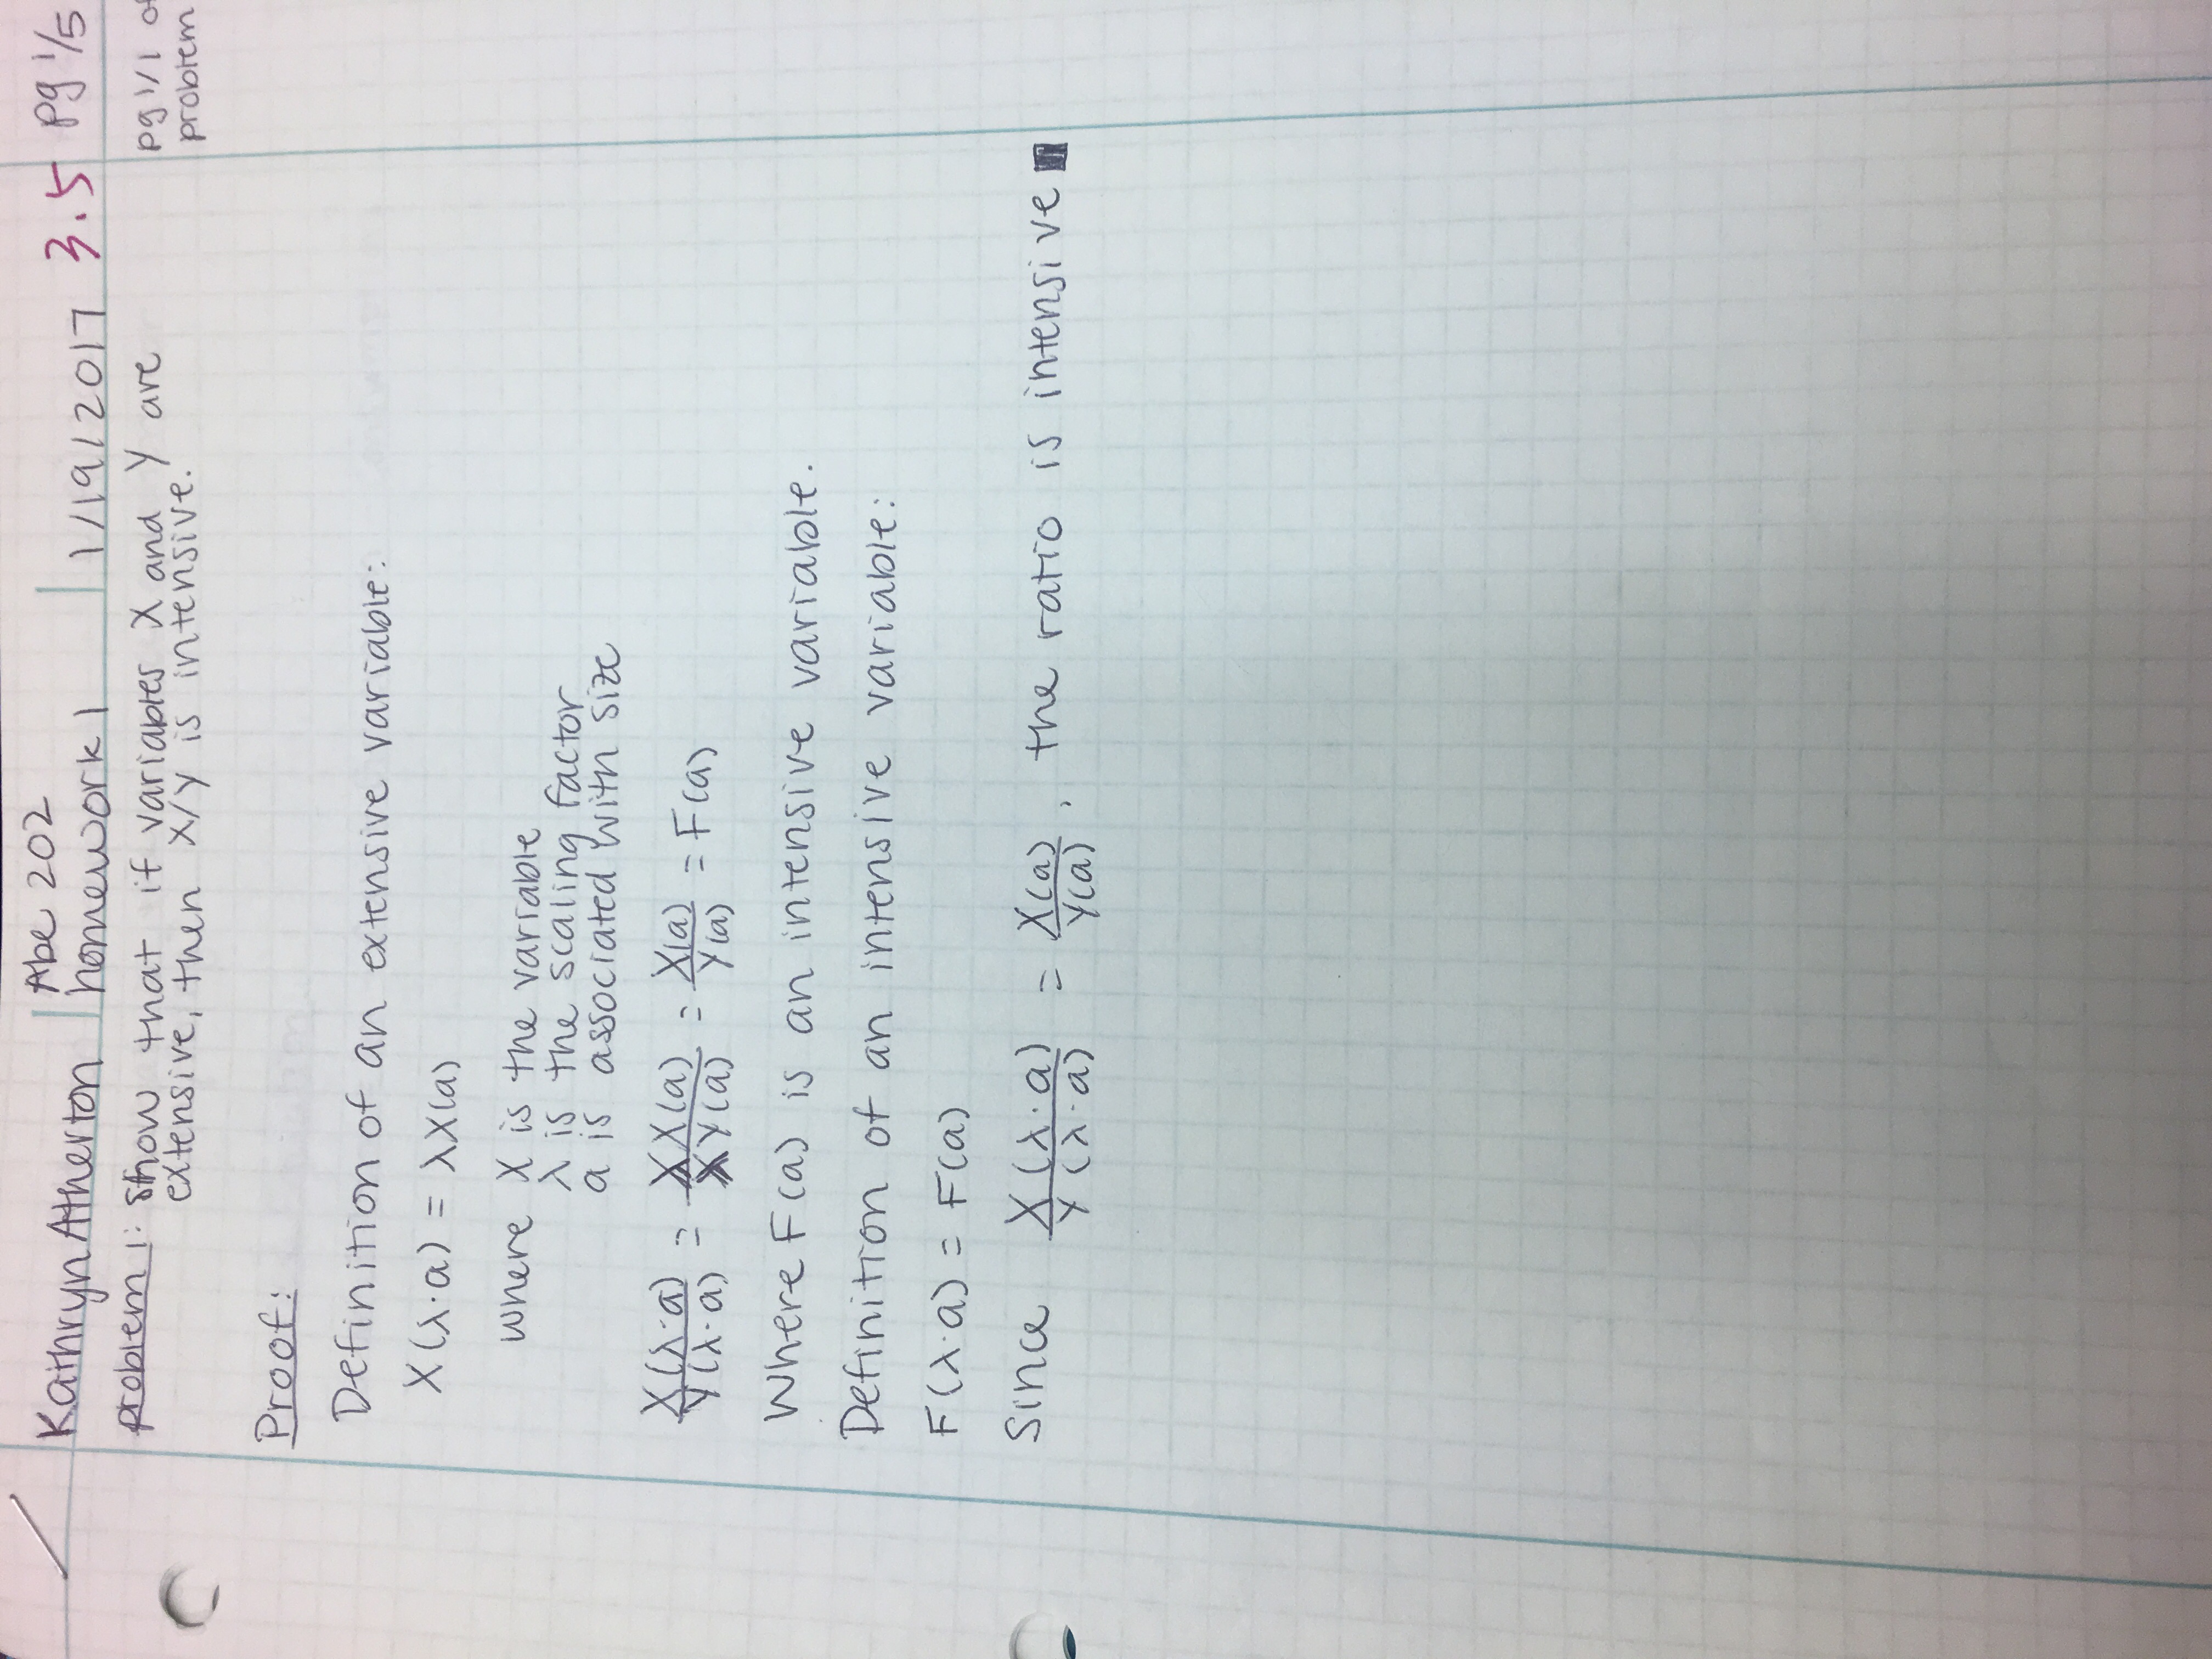 Kathryn Atherton
Abe 202
homework 1
1/19/2017
3.5
pg 1/5
problem 1: Show that if variables X and Y are
extensive, then X/Y is intensive.
pg 1/1 of
problem
Proof:
Definition of an extensive variable:
X(λ·a) = λX(a)
where X is the variable
λ is the scaling factor
a is associated with size
X(λ·a)/Y(λ·a) = λX(a)/λY(a) = X(a)/Y(a) = F(a)
Where F(a) is an intensive variable.
Definition of an intensive variable:
F(λ·a) = F(a)
Since X(λ·a)/Y(λ·a) = X(a)/Y(a), the ratio is intensive ■